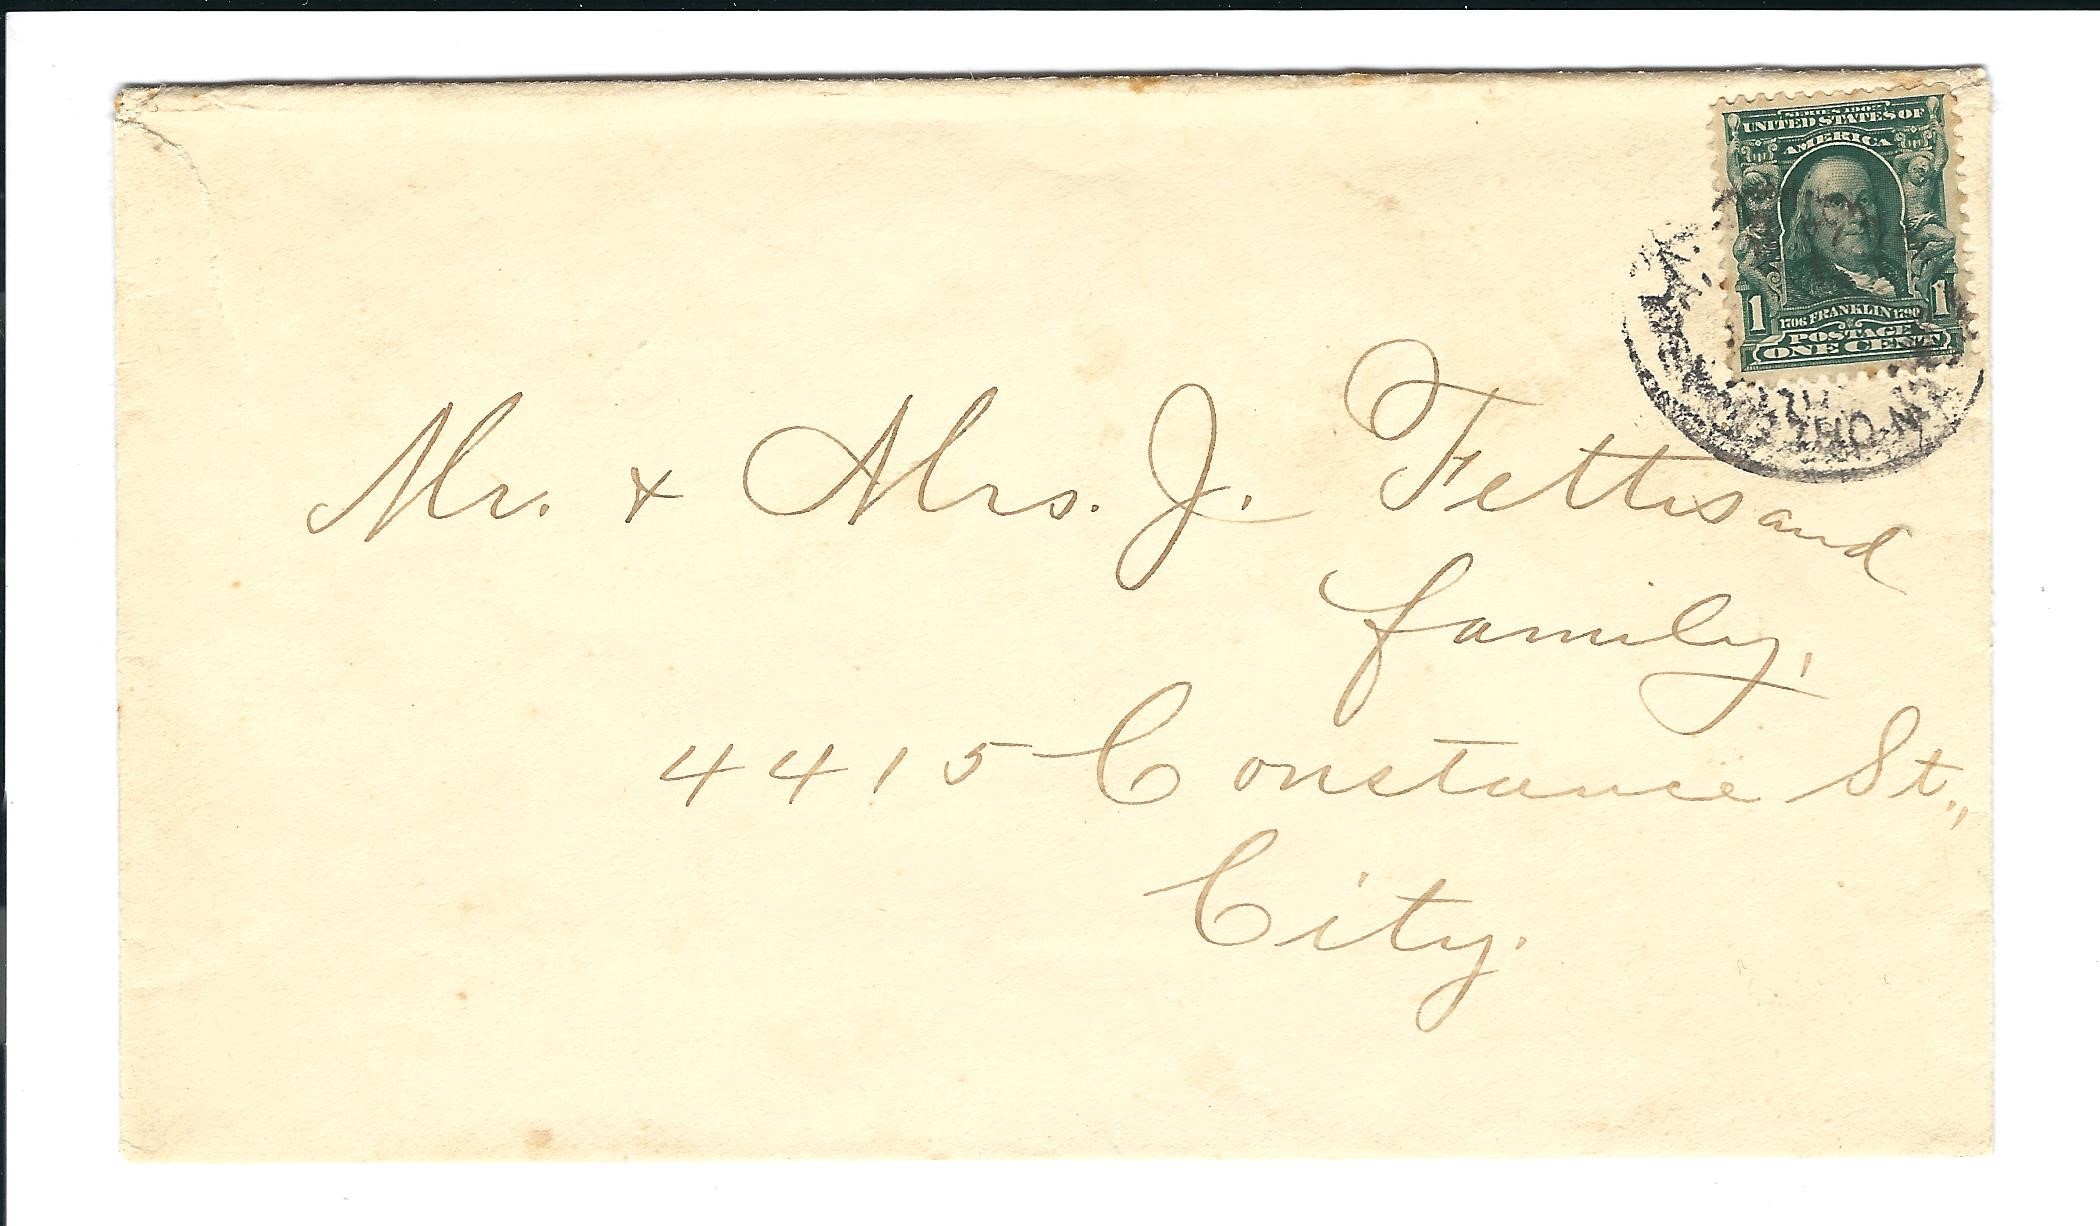 SERIES 1902
UNITED STATES OF
AMERICA
1 1
1706 FRANKLIN 1790
POSTAGE
ONE CENT
Mr. + Mrs. J. Fettis and
family,
4415 Constance St.,
City.